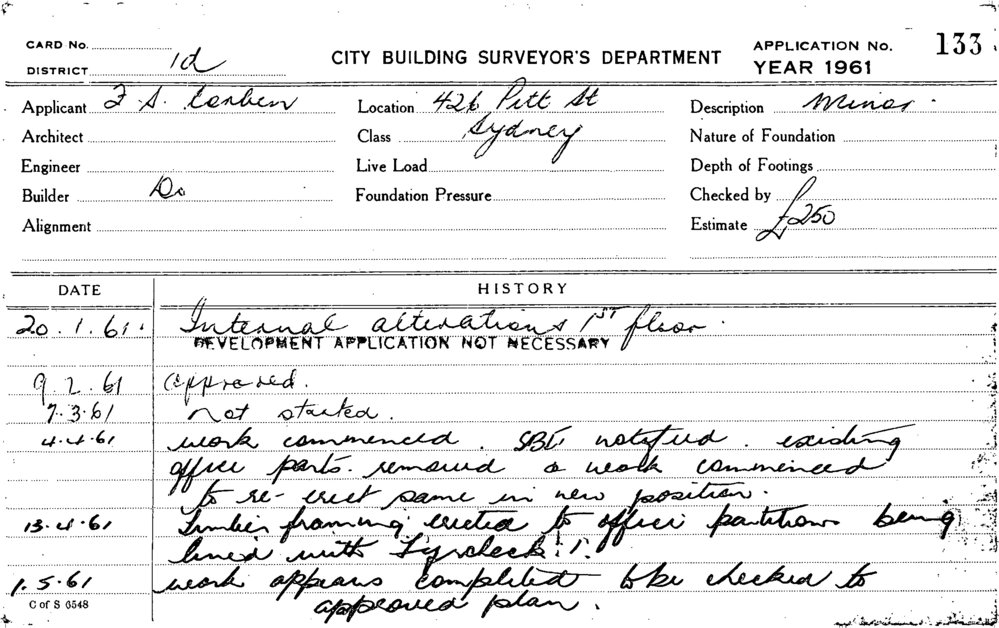 CARD No.
DISTRICT 1d
CITY BUILDING SURVEYOR'S DEPARTMENT
APPLICATION No. 133
YEAR 1961
Applicant F. S. Corben Location 426 Pitt St Description Minor.
Architect Class Sydney Nature of Foundation
Engineer Live Load Depth of Footings
Builder Do Foundation Pressure Checked by
Alignment Estimate £250
DATE HISTORY
20.1.61. Internal alterations 1ST floor.
DEVELOPMENT APPLICATION NOT NECESSARY
9.2.61 approved.
7.3.61 not started.
4.4.61 work commenced. notified. existing
office parts. removed & work commenced
to re-erect same in new position.
13.4.61 Timber framing erected to office partitions being
lined with Gyrocheck.
1.5.61 work appears completed to be checked to
approved plan.
C of S 6548